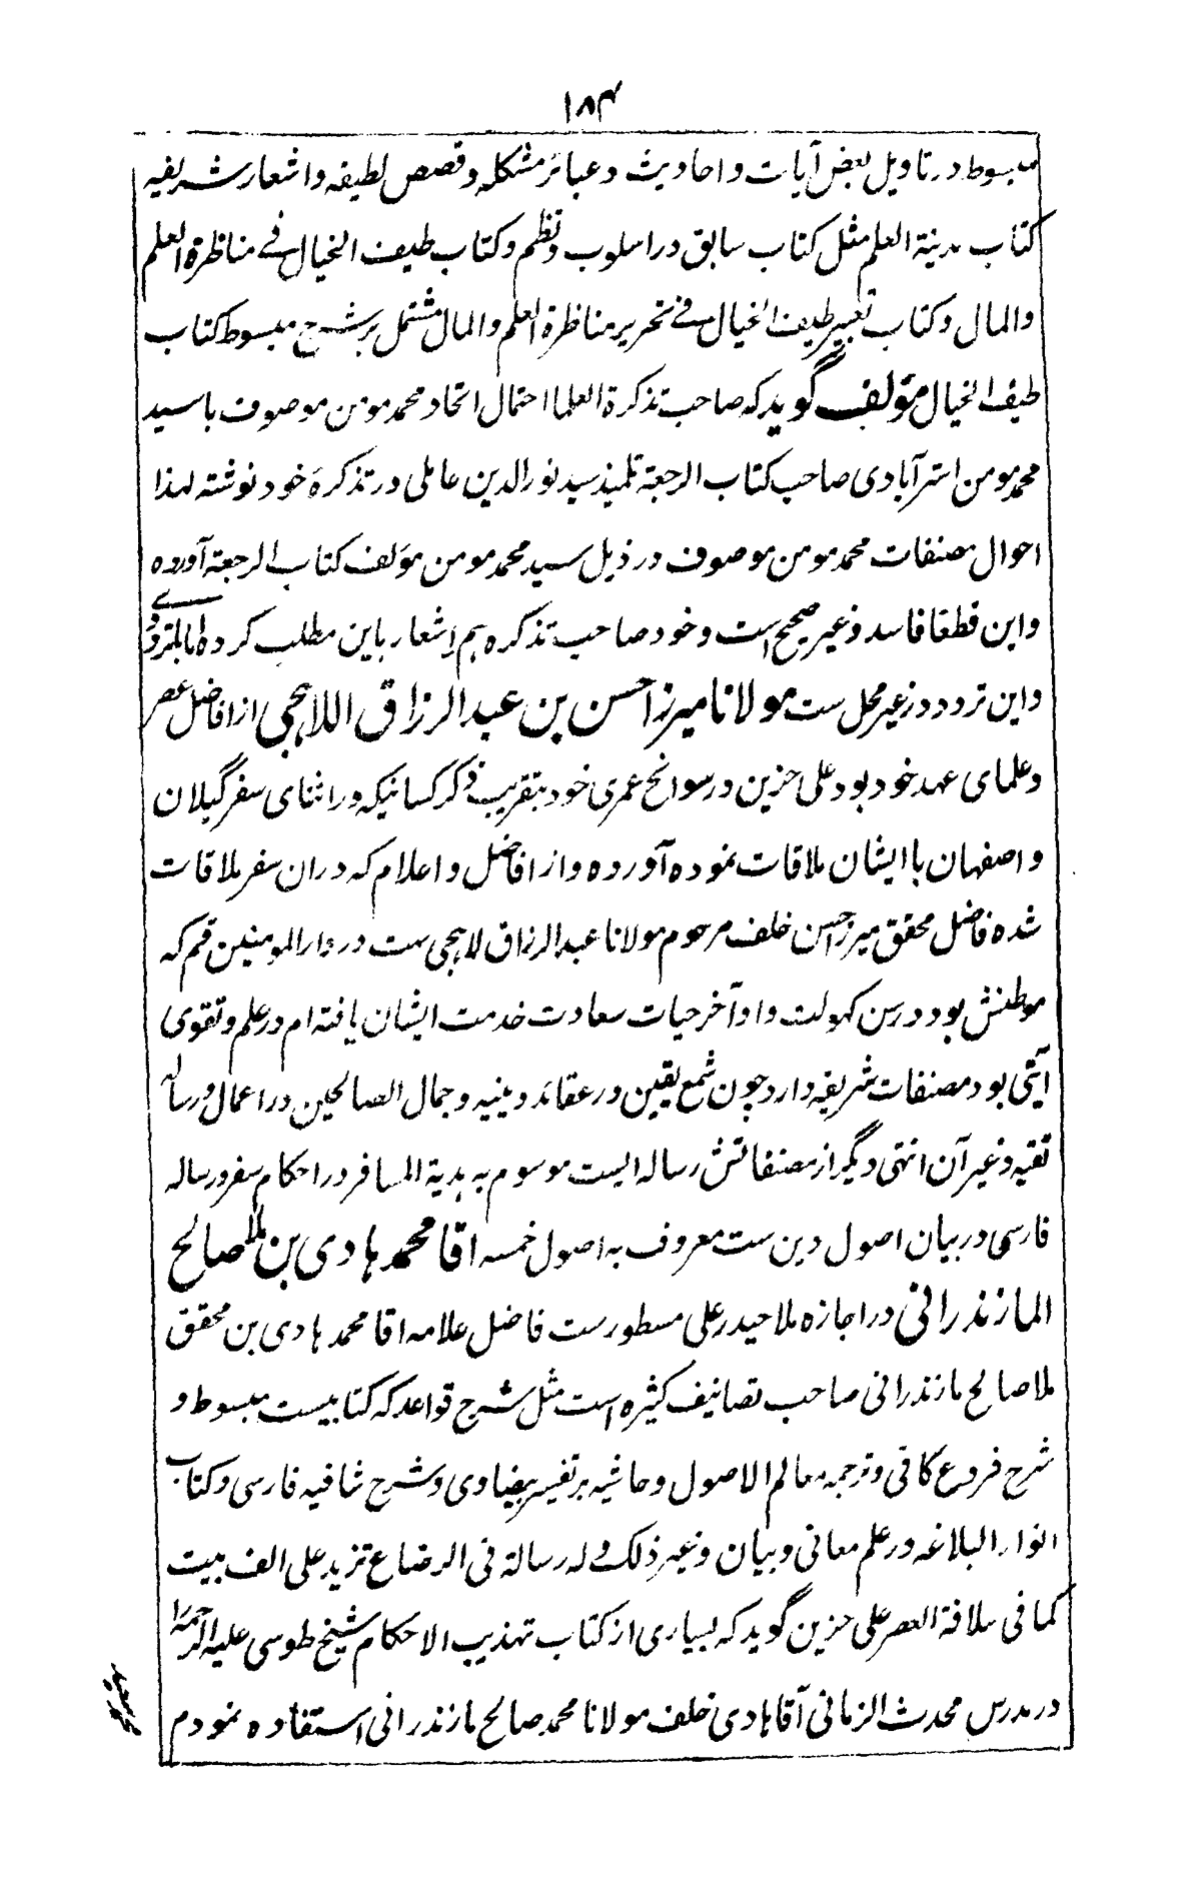 ۱۸۴
مبسوط در تاویل بعض آیات و احادیث و عبائر مشکله و قصص لطیفه و اشعار شریفه
کتاب مدینة العلم مثل کتاب سابق در اسلوب و نظم و کتاب طیف الخیال فے مناظرة العلم
والمال و کتاب تعبیر طیف الخیال فے تحریر مناظرة العلم والمال مشتمل بر شرح مبسوط کتاب
طیف الخیال مؤلف گوید که صاحب تذکرة العلما احتمال اتحاد محمد مومن موصوف با سید
محمد مومن استرآبادی صاحب کتاب الرجعة تلمیذ سید نور الدین عاملی در تذکرهٔ خود نوشته لهذا
احوال مصنفات محمد مومن موصوف در ذیل سید محمد مومن مؤلف کتاب الرجعة آورده
و این قطعا فاسد و غیر صحیح است و خود صاحب تذکره هم اشعار باین مطلب کرده اما بالتردد
و این تردد در غیر محل ست مولانا میرزا حسن بن عبد الرزاق اللاهجی از افاضل عصر
و علمای عهد خود بود علی حزین در سوانح عمری خود بتقریب ذکر کسانیکه در اثنای سفر گیلان
و اصفهان با ایشان ملاقات نموده آورده و از افاضل و اعلام که دران سفر ملاقات
شده فاضل محقق میرزا حسن خلف مرحوم مولانا عبد الرزاق لاهجی ست در دار المومنین قم که
موطنش بود در سن کهولت و اواخر حیات سعادت خدمت ایشان یافته ام در علم و تقوی
آیتی بود مصنفات شریفه دارد چون شمع یقین در عقائد دینیه و جمال الصالحین در اعمال و رساله
تقیه و غیر آن انتهی دیگر از مصنفاتش رساله ایست موسوم به هدیة المسافر در احکام سفر و رساله
فارسی در بیان اصول دین ست معروف به اصول خمسه اقا محمد هادی بن ملا صالح
المازندرانی در اجازه ملا حیدر علی مسطورست فاضل علامه اقا محمد هادی بن محقق
ملا صالح مازندرانی صاحب تصانیف کثیره است مثل شرح قواعد که کتابیست مبسوط و
شرح فروع کافی و ترجمه معالم الاصول و حاشیه بر تفسیر بیضاوی و شرح شافیه فارسی و کتاب
انوار البلاغه در علم معانی و بیان و غیر ذلک و له رسالة فی الرضاع تزید علی الف بیت
کما فی سلافة العصر علی حزین گوید که بسیاری از کتاب تهذیب الاحکام شیخ طوسی علیه الرحمة را
در مدرس محدث الزمانی آقا هادی خلف مولانا محمد صالح مازندرانی استفاده نمودم